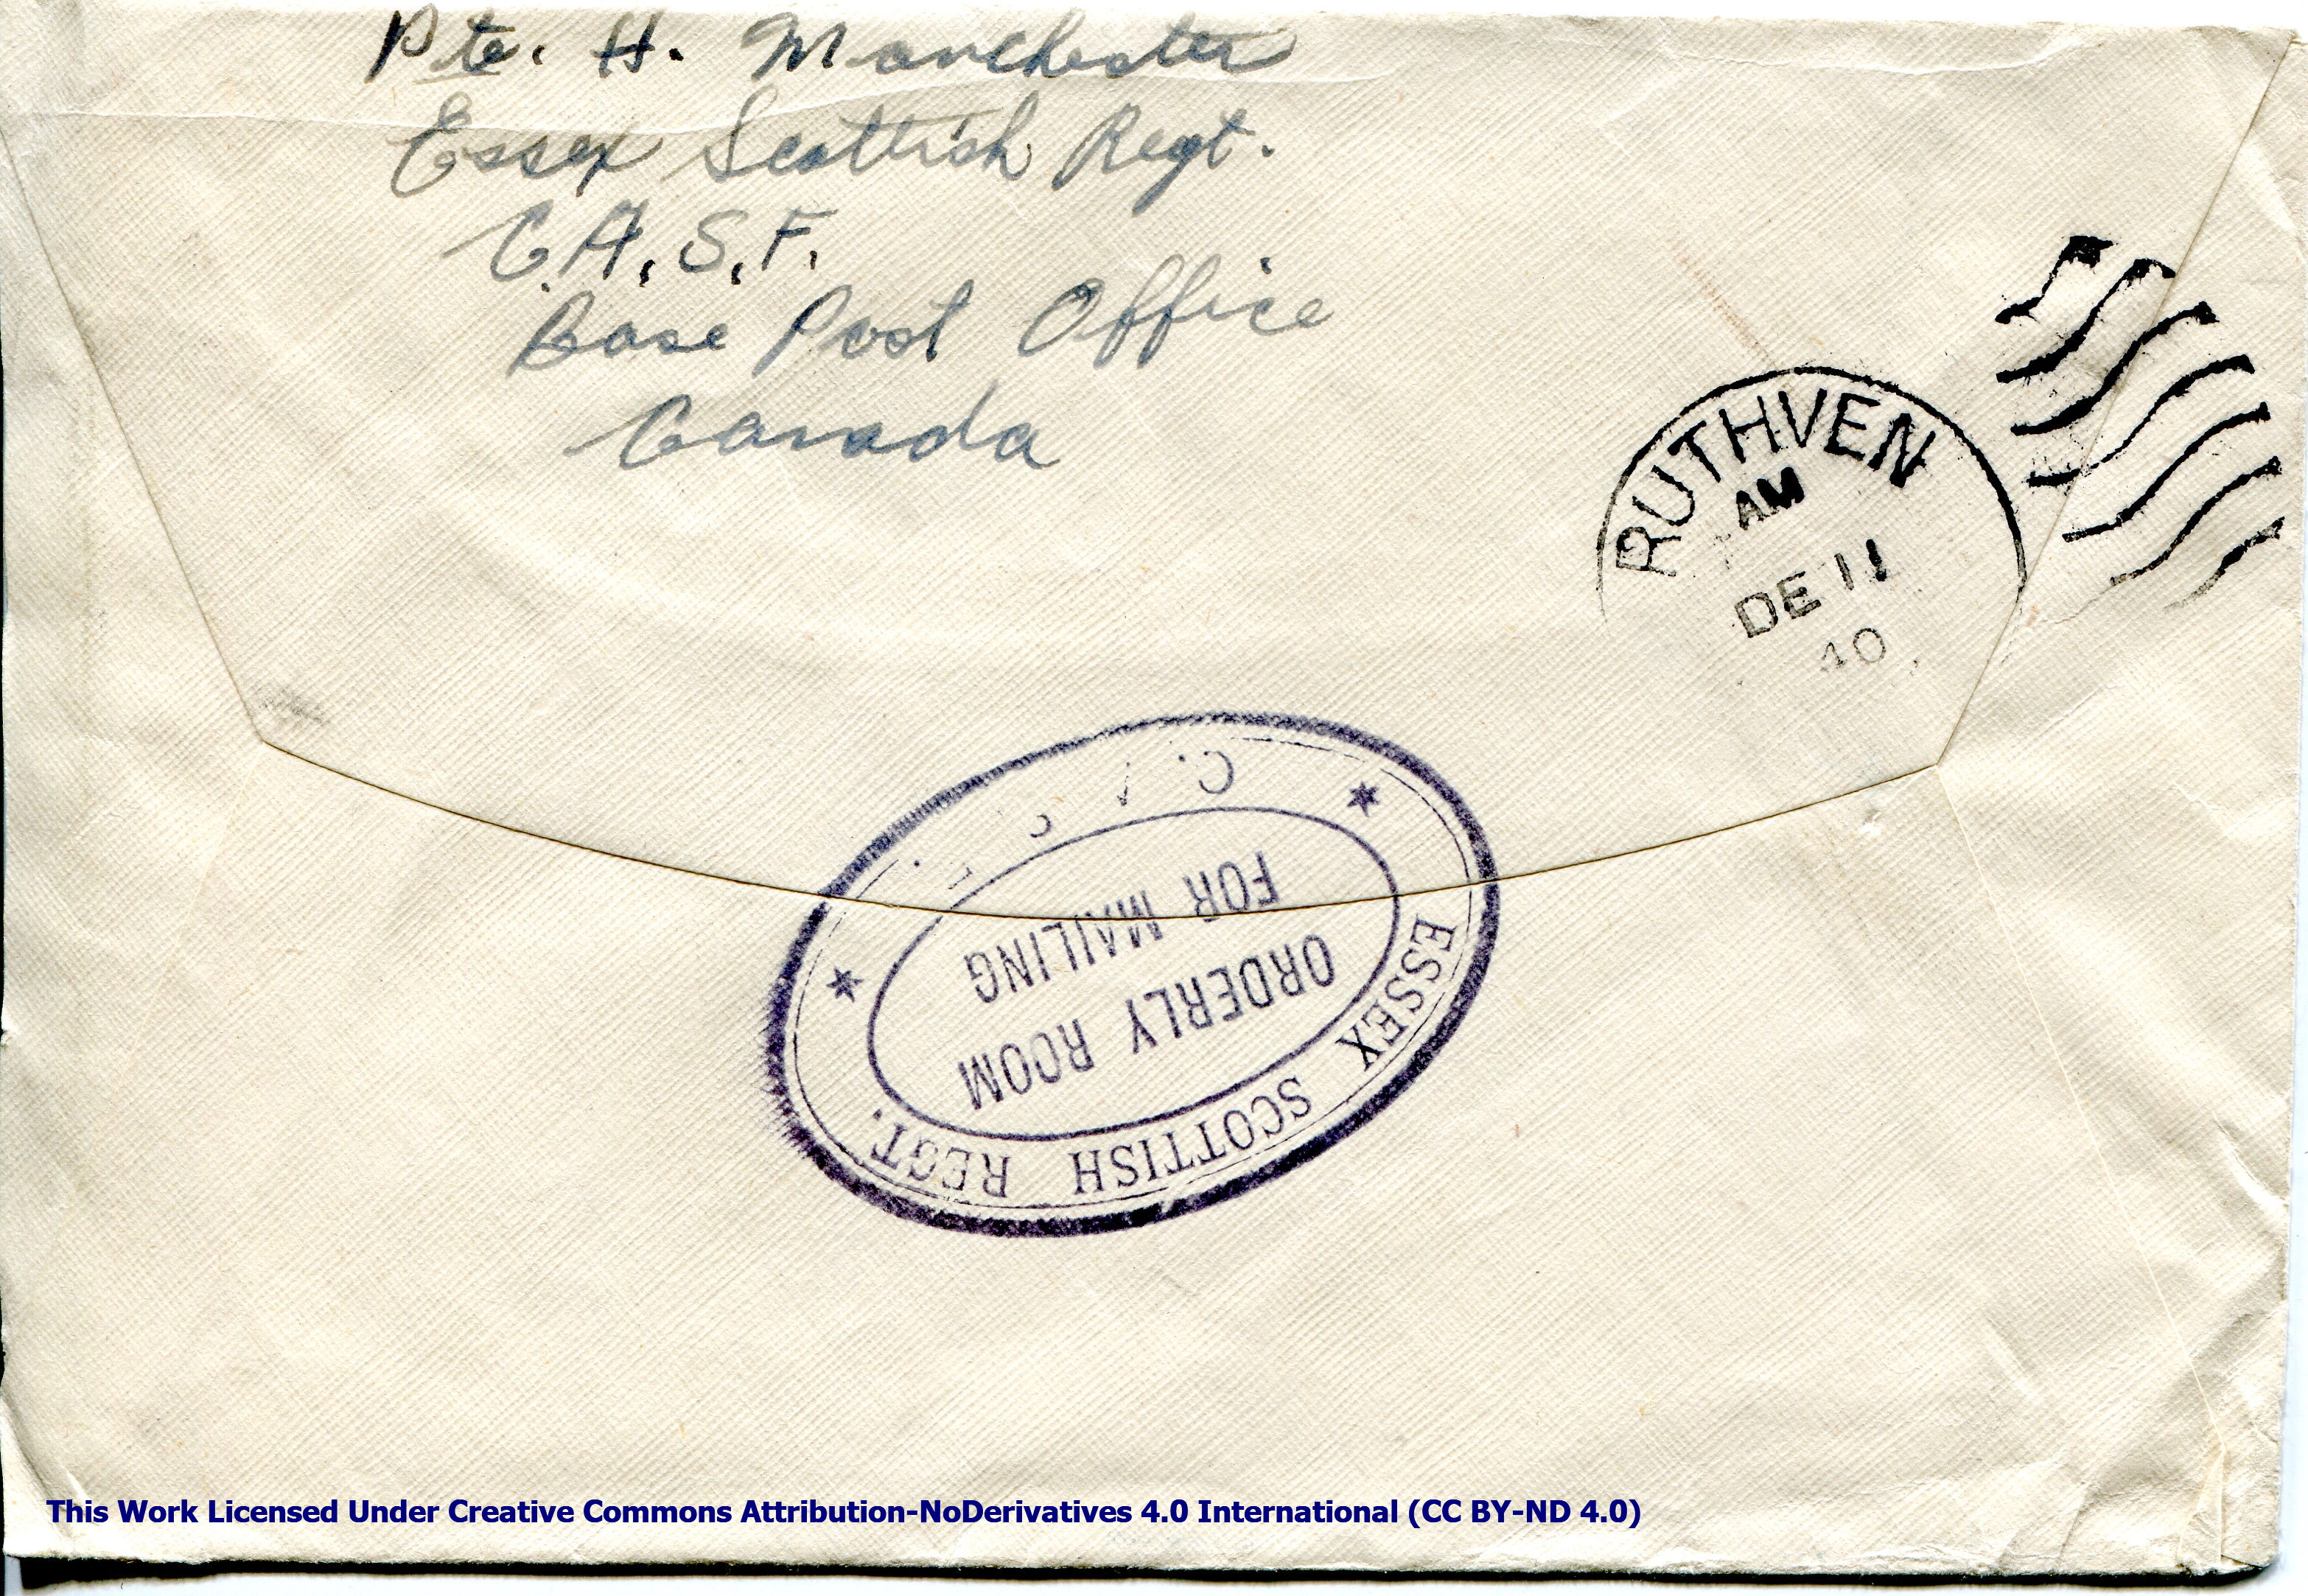 Pte. H. Manchester
Essex Scottish Regt.
C.A.S.F.
Base Post Office
Canada
RUTHVEN
AM
DE 11
40
ESSEX SCOTTISH REGT.
ORDERLY ROOM
FOR MAILING
This Work Licensed Under Creative Commons Attribution-NoDerivatives 4.0 International (CC BY-ND 4.0)